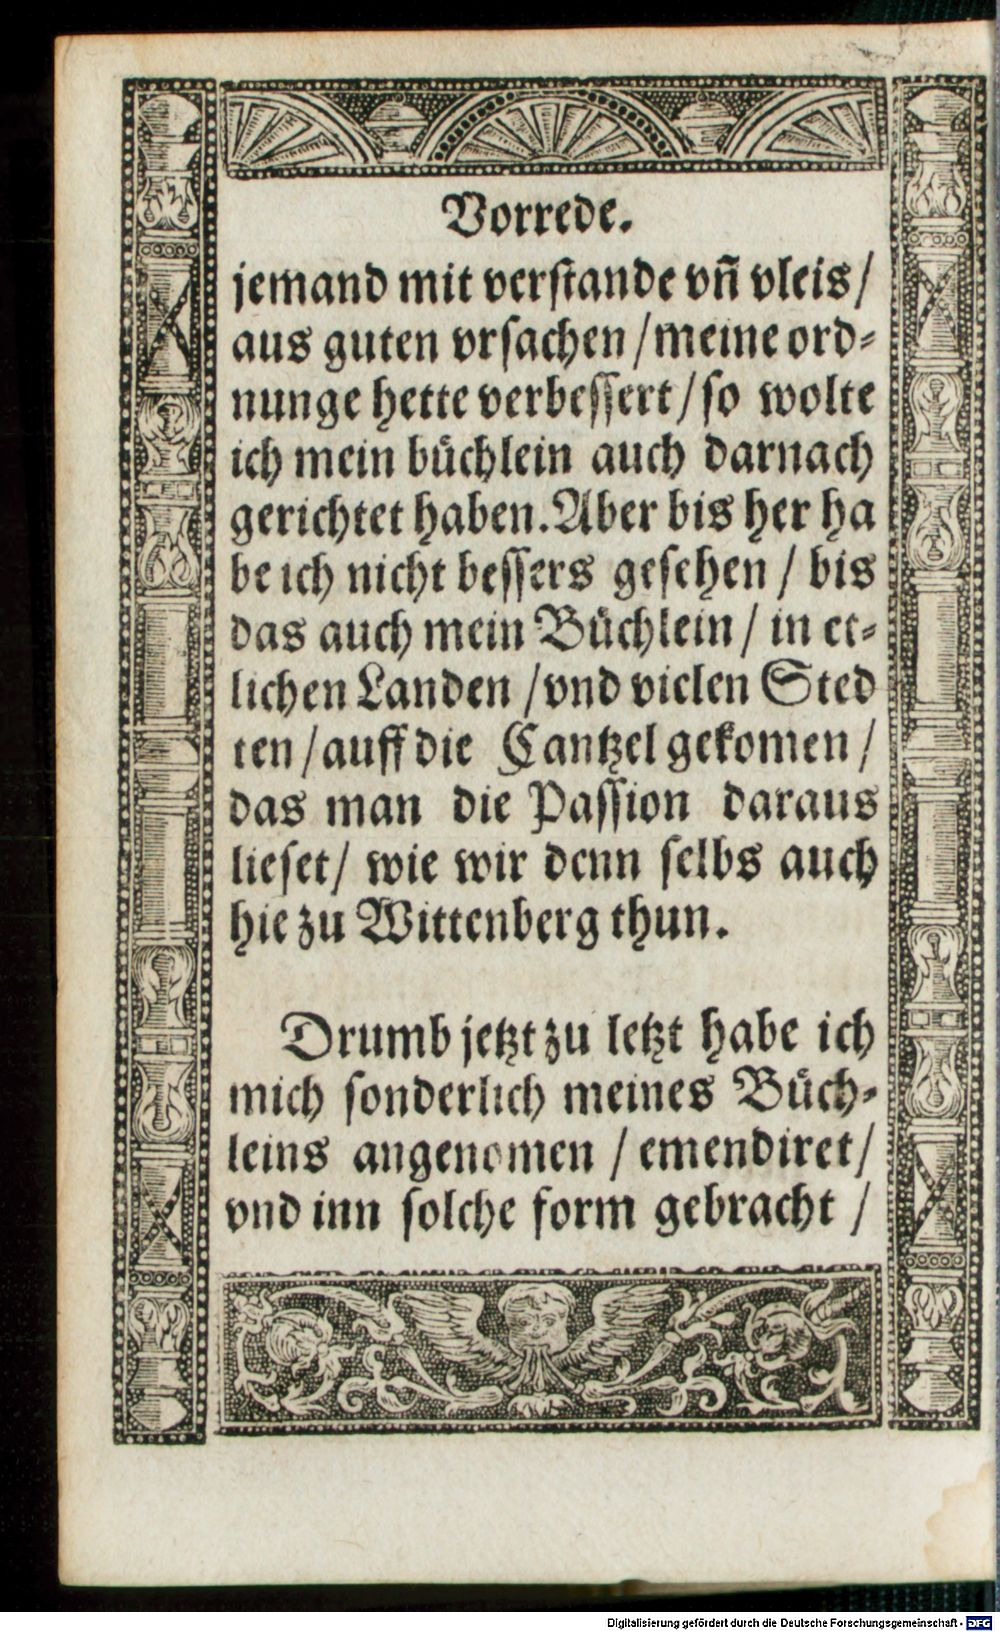 Vorrede.
jemand mit verſtande vñ vleis/
aus guten vrſachen/meine ord⸗
nunge hette verbeſſert/ſo wolte
ich mein büchlein auch darnach
gerichtet haben. Aber bis her ha
be ich nicht beſſers geſehen/ bis
das auch mein Büchlein/ in et⸗
lichen Landen /vnd vielen Sted
ten/auff die Cantzel gekomen/
das man die Paſſion daraus
lieſet/ wie wir denn ſelbs auch
hie zu Wittenberg thun.
Drumb jetzt zu letzt habe ich
mich ſonderlich meines Büch⸗
leins angenomen / emendiret/
vnd inn ſolche form gebracht /
Digitalisierung gefördert durch die Deutsche Forschungsgemeinschaft - DFG